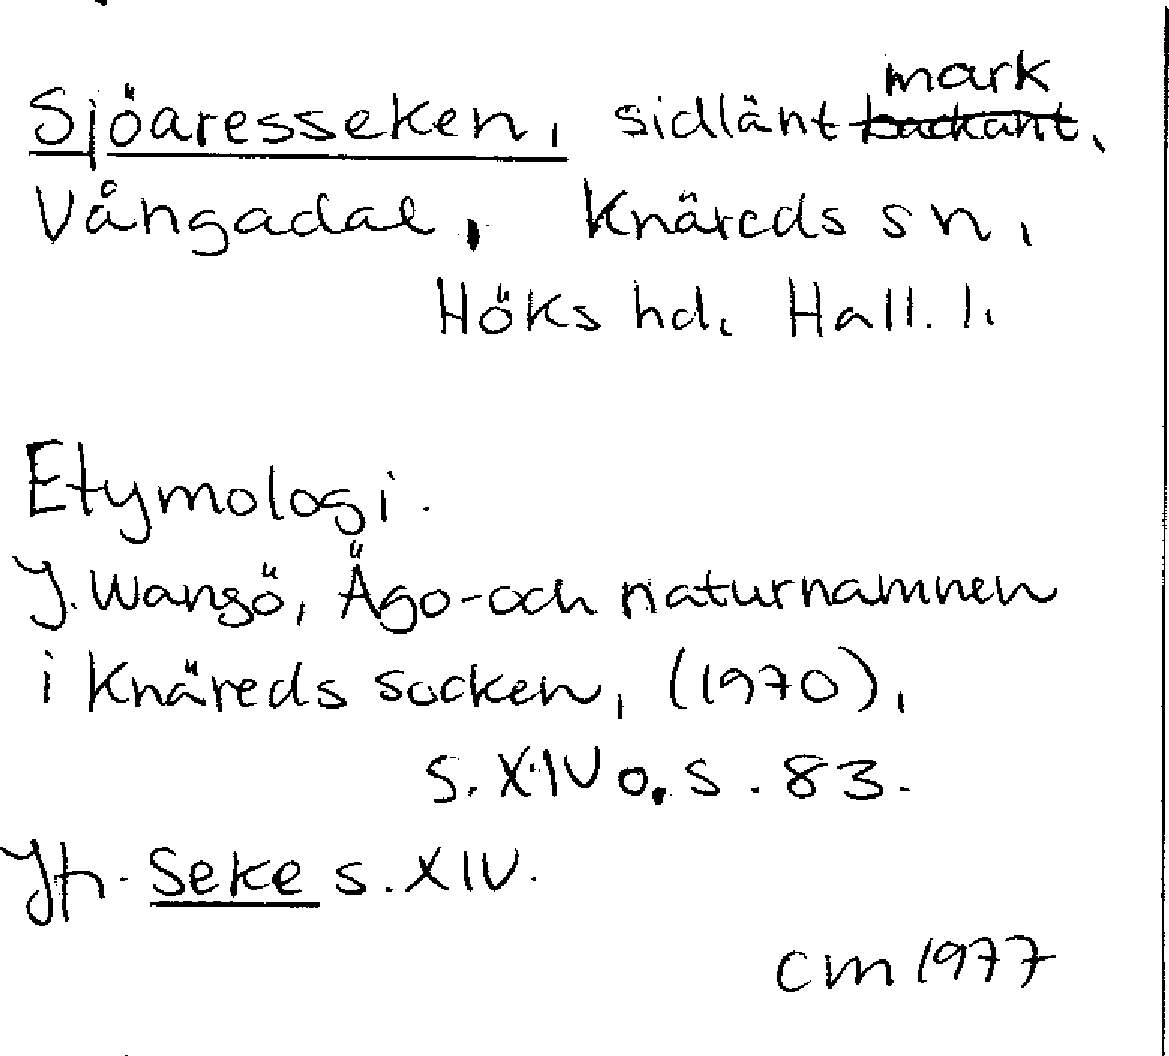 Sjöaresseken, sidlänt mark
Vångadal, Knäreds sn,
Höks hd. Hall. l.
Etymologi.
J. Wangö, Ägo- och naturnamnen
i Knäreds socken, (1970),
s. XIV o. s. 83.
Jfr. Seke s. XIV.
CM 1977